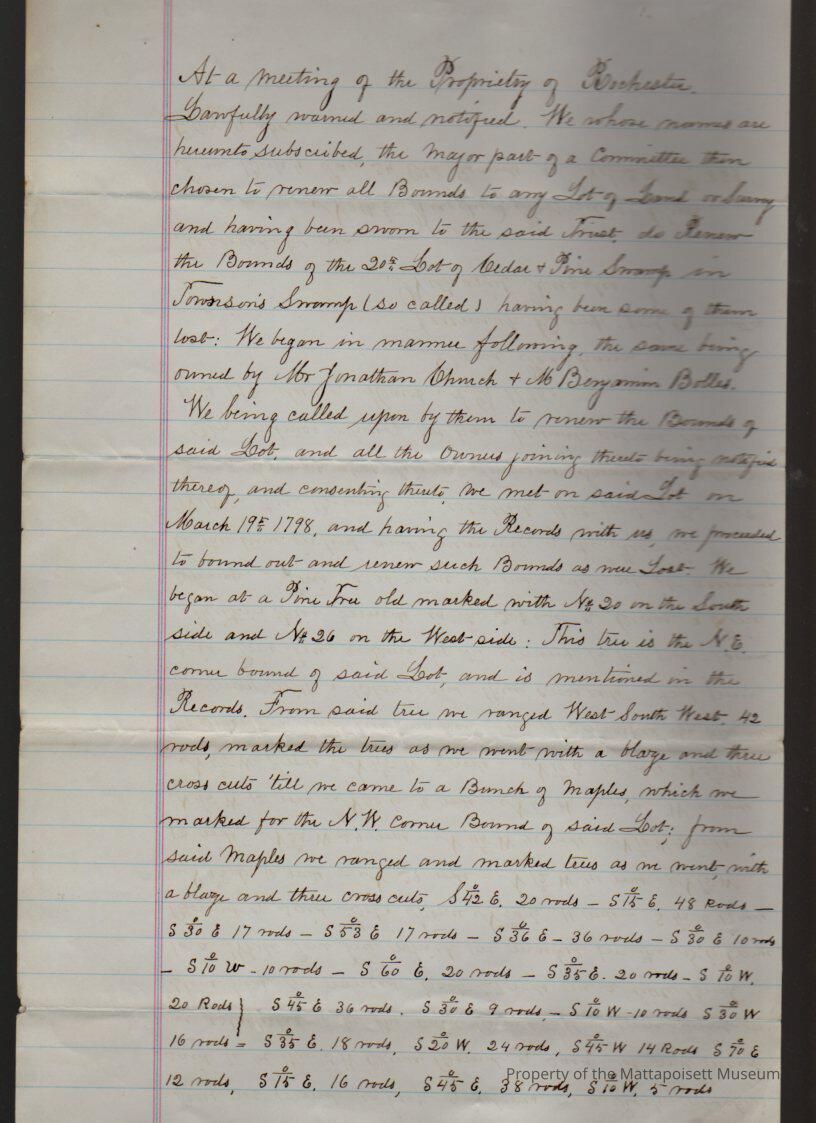 At a meeting of the Propriety of Rochester.
Lawfully warned and notified. We whose names are
hereunto subscribed, the Major part of a Committee then
chosen to renew all Bounds to any Lot of Land or Survey
and having been sworn to the said Trust, do Renew
the Bounds of the 20th Lot of Cedar + Pine Swamp in
Townson's Swamp (so called) having been some of them
lost: We began in manner following, the same being
owned by Mr Jonathan Church + Mr Benjamin Bolles.
We being called upon by them to renew the Bounds of
said Lot, and all the Owners joining thereto being notified
thereof, and consenting thereto, we met on said Lot on
March 19th 1798, and having the Records with us, we proceeded
to bound out and renew such Bounds as were Lost. We
began at a Pine Tree old marked with No 20 on the South
side and No 26 on the West side: This tree is the N.E.
corner bound of said Lot, and is mentioned in the
Records. From said tree we ranged West South West, 42
rods, marked the trees as we went with a blaze and three
cross cuts 'till we came to a Bunch of Maples, which we
marked for the N.W. corner Bound of said Lot; from
said Maples we ranged and marked trees as we went, with
a blaze and three cross cuts, S 42° E. 20 rods – S 15° E. 48 Rods –
S 30° E 17 rods – S 53° E 17 rods – S 36° E – 36 rods – S 30° E 10 rods
– S 10° W - 10 rods – S 60° E. 20 rods – S 35° E. 20 rods – S 10° W.
20 Rods } S 45° E 36 rods. S 30° E 9 rods, – S 10° W - 10 rods S 30° W
16 rods = S 35° E. 18 rods, S 20° W. 24 rods, S 45° W 14 Rods S 70° E
12 rods, S 15° E. 16 rods, S 45° E. 38 rods, S 10° W. 5 rods
Property of the Mattapoisett Museum